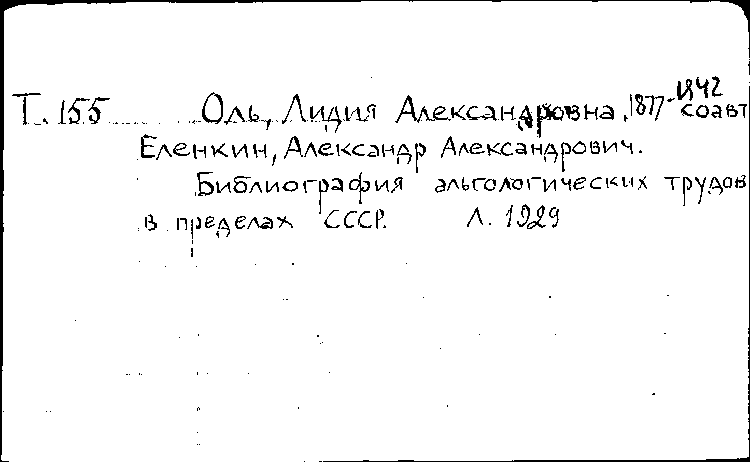 Т. 155 Оль, Лидия Александровна, 1877-1942 соавт
Еленкин, Александр Александрович.
Библиография альгологических трудов
в пределах СССР. Л. 1929